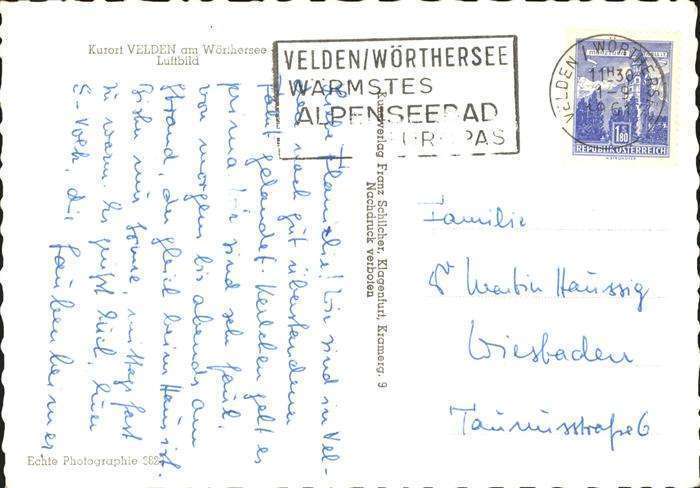 Kurort VELDEN am Wörthersee
Luftbild
VELDEN/WÖRTHERSEE
WÄRMSTES
ALPENSEEBAD
EUROPAS
VELDEN / WÖRTHERSEE
11H30
1 8 0
REPUBLIK ÖSTERREICH
Kunstverlag Franz Schilcher, Klagenfurt, Kramerg. 9
Nachdruck verboten
Familie
Dr Martin Haussig
Wiesbaden
Taunusstraße 6
Wir sind in Vel-
den nach gut überstandener
Fahrt gelandet. es
prima. Wir sind sehr faul,
von morgens bis abends am
Strand, der gleich beim Haus ist.
Bisher nur Sonne, mittags fast
zu warm. Es grüßt Euch, Euer
Echte Photographie